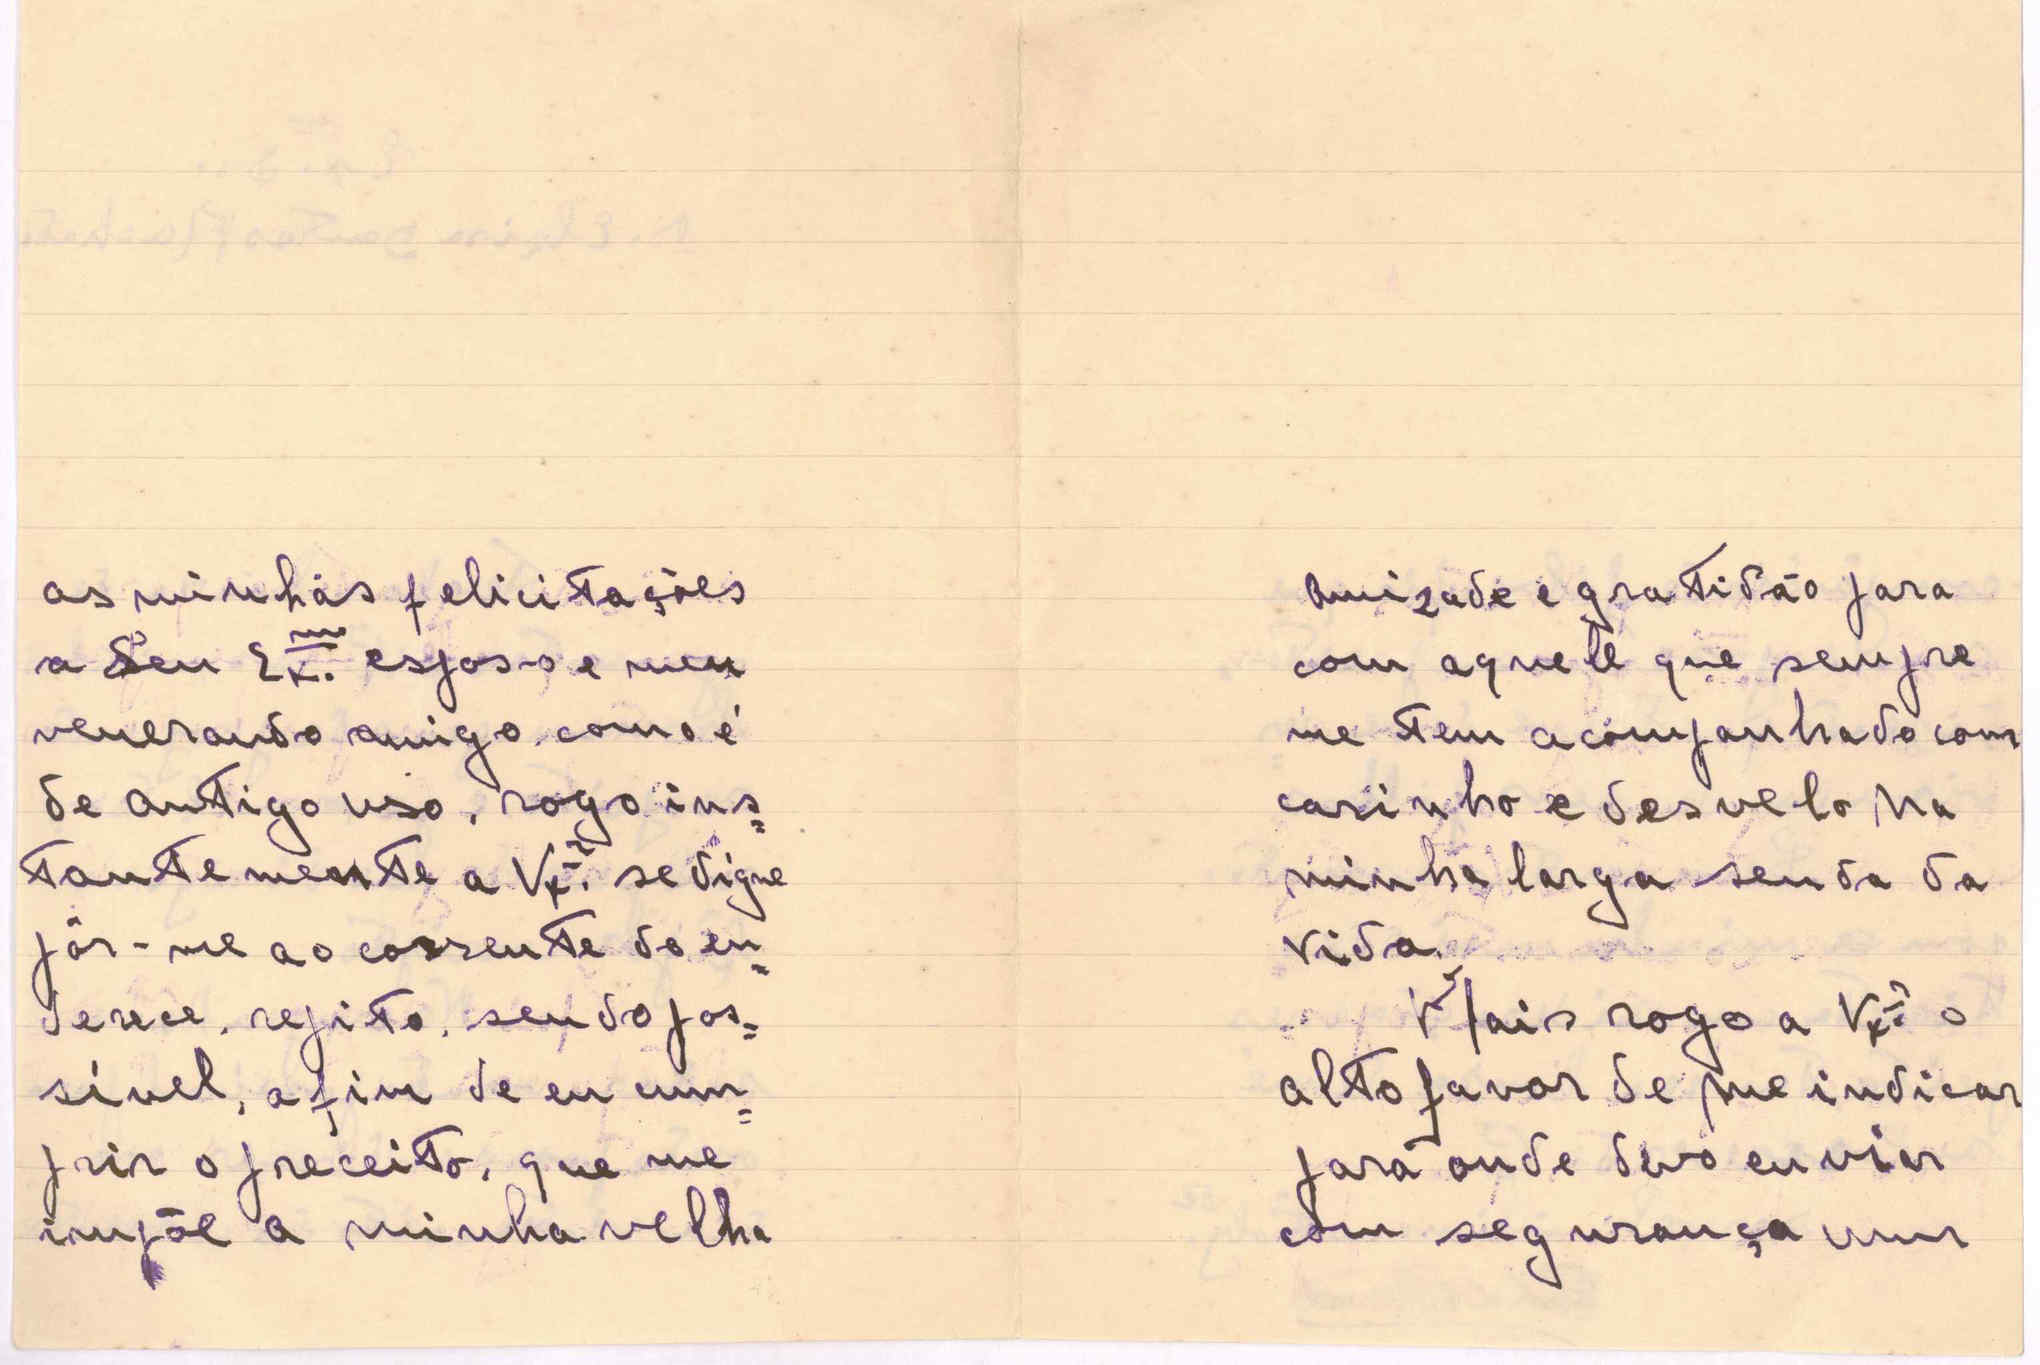 as minhas felicitações
a Seu Ex.mo esposo e meu
venerando amigo como é
de antigo uso, rogo ins=
tantemente a V. Ex.ª se digne
pôr-me ao corrente do en=
derece, repito, sendo pos=
sível, afim de eu cum=
prir o preceito, que me
impõe a minha velha
Amizade e gratidão para
com aquele que sempre
me tem acompanhado com
carinho e desvelo na
minha larga senda da
vida.
Mais rogo a V. Ex.ª o
alto favor de me indicar
para onde devo enviar
com segurança um